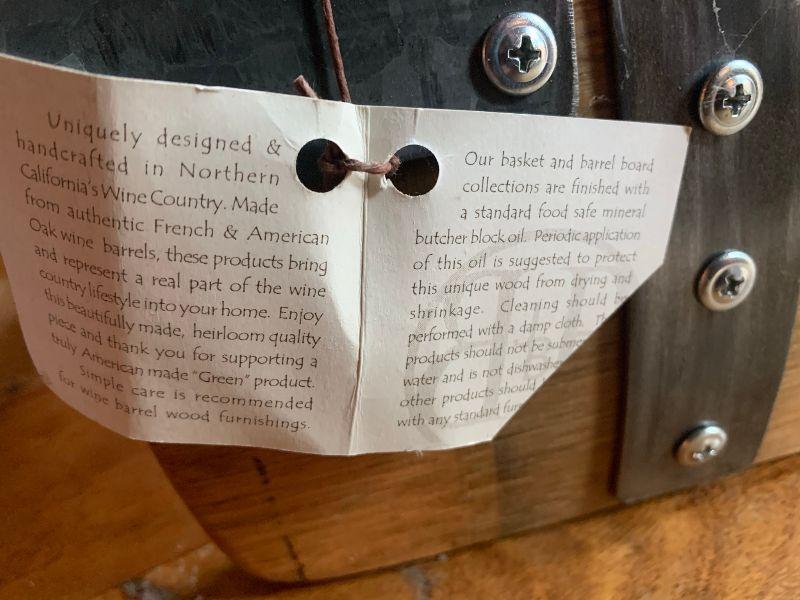 Uniquely designed &
handcrafted in Northern
California's Wine Country. Made
from authentic French & American
Oak wine barrels, these products bring
and represent a real part of the wine
country lifestyle into your home. Enjoy
this beautifully made, heirloom quality
piece and thank you for supporting a
truly American made "Green" product.
Simple care is recommended
for wine barrel wood furnishings.
Our basket and barrel board
collections are finished with
a standard food safe mineral
butcher block oil. Periodic application
of this oil is suggested to protect
this unique wood from drying and
shrinkage. Cleaning should be
performed with a damp cloth.
products should not be
water and is not
other products should
with any standard